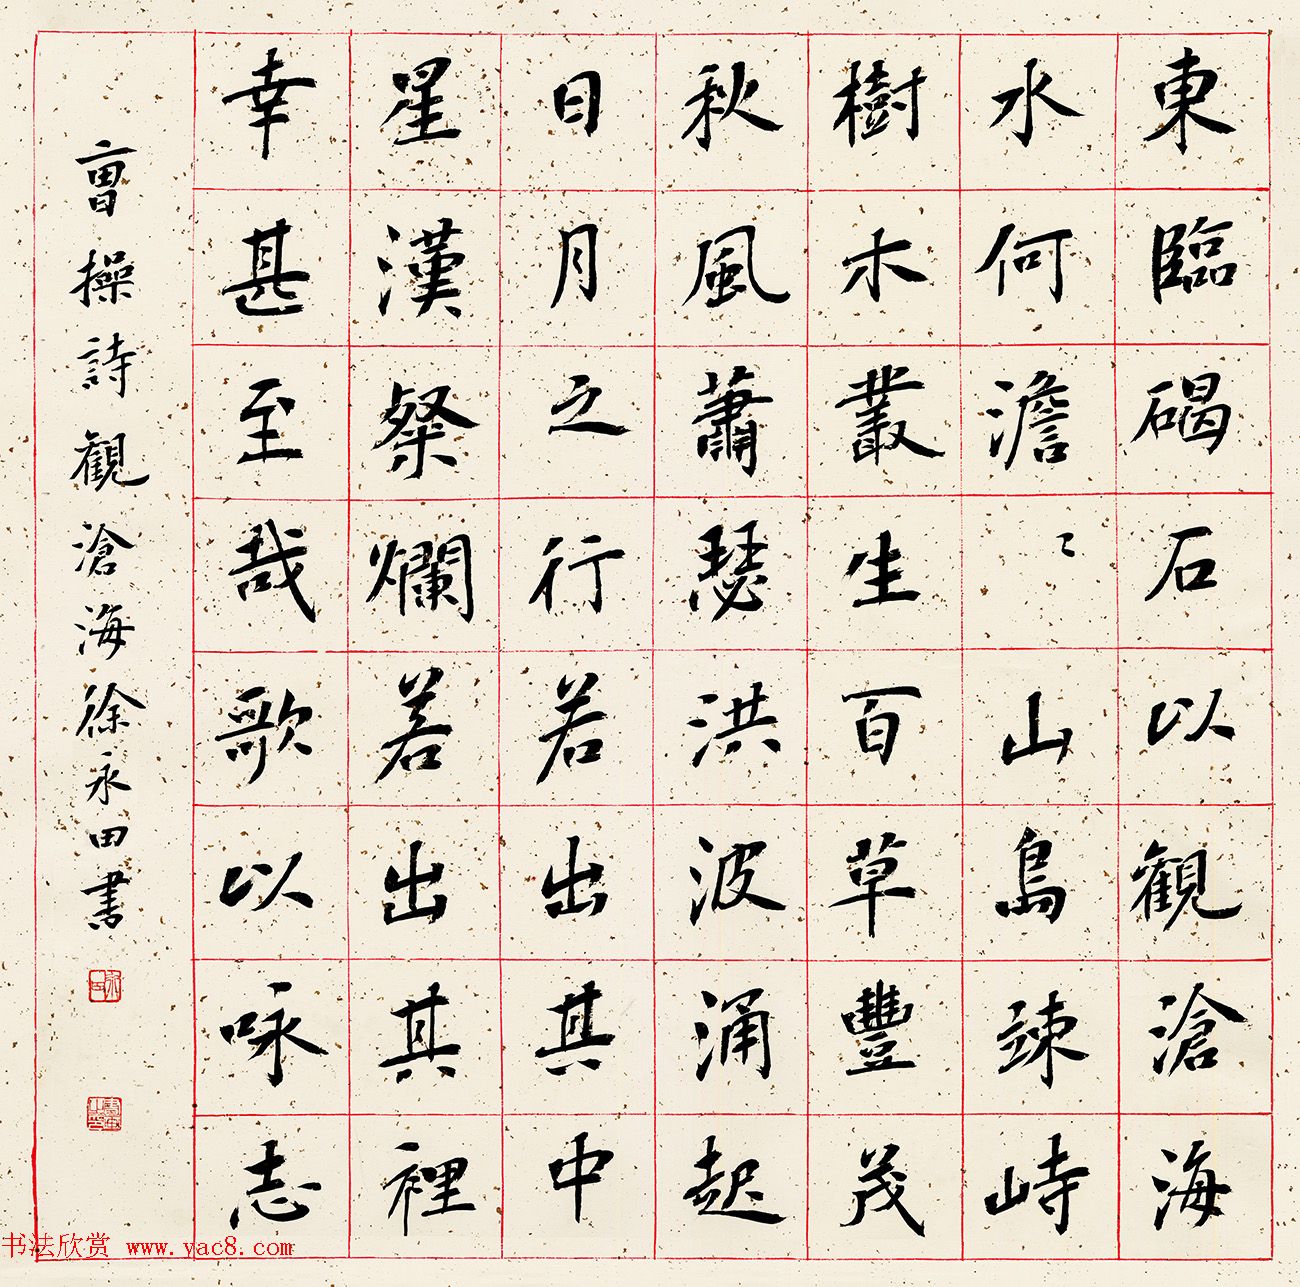 東臨碣石以觀滄海
水何澹〻山島竦峙
樹木叢生百草豐茂
秋風蕭瑟洪波涌起
日月之行若出其中
星漢粲爛若出其裡
幸甚至哉歌以咏志
曹操詩觀滄海徐永田書
书法欣赏 www.yac8.com